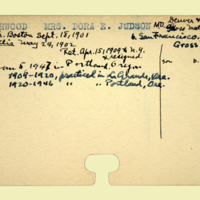 WOOD MRS. DORA E. JUDSON MD. Denver &
Gross Med
. Boston Sept. 15, 1901 b. San Francisco.
May 24, 1902 Gross
Rst. Apr. 15, 1909 & N.Y.
resigned.
5 1947 in Portland, Oregon
1909-1920, practiced in La Grande, Ore.
1920-1946 " Portland, Ore.